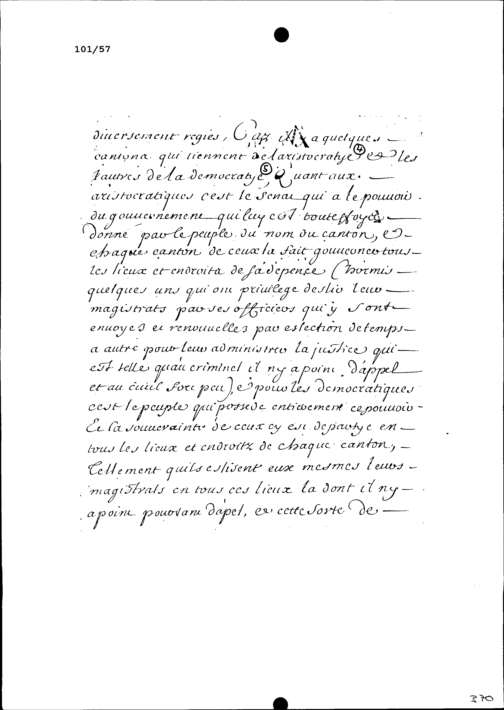 101/57
diversement regies, Car il y a quelques
cantons qui tiennent de laristocratye (4) et les
autres de la democratye (5) Quant aux
aristocratiques cest le Senat qui a le pouvoir
du gouvernement qui luy est touteffoys
donné par le peuple du nom du canton, et
chaque canton de ceux la fait gouverner tous
les lieux et endroits de sa depence (hormis
quelques uns qui ont privilege deslir leurs
magistrats par ses officiers qui y sont
envoyes et renouvelles par eslection de temps
a autre pour leur administrer la justice qui
est telle quau criminel il ny a point d'appel
et au civil fort peu), et pour les democratiques
cest le peuple qui possede entierement ce pouvoir
Et la souveraineté de ceux cy est departye en
tous les lieux et endroitz de chaque canton,
Tellement quils eslisent eux mesmes leurs
magistrats en tous ces lieux la dont il ny
a point pourtant d'apel, et cette sorte de
370